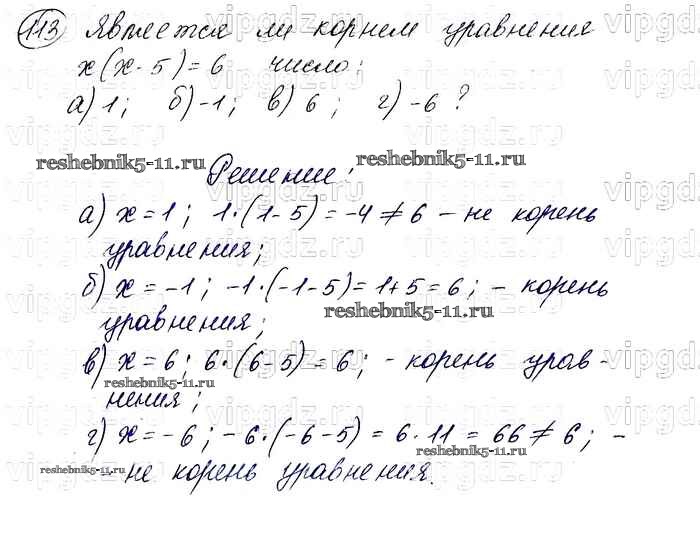 113 Является ли корнем уравнения
x(x-5)=6 число:
а) 1; б) -1; в) 6; г) -6?
reshebnik5-11.ru reshebnik5-11.ru
Решение:
а) x=1; 1·(1-5)=-4≠6 - не корень
уравнения;
б) x=-1; -1·(-1-5)=1+5=6; - корень
reshebnik5-11.ru
уравнения;
в) x=6; 6·(6-5)=6; - корень урав-
reshebnik5-11.ru
нения;
г) x=-6; -6·(-6-5)=6·11=66≠6; -
reshebnik5-11.ru
reshebnik5-11.ru
- не корень уравнения.
vipgdz.ru